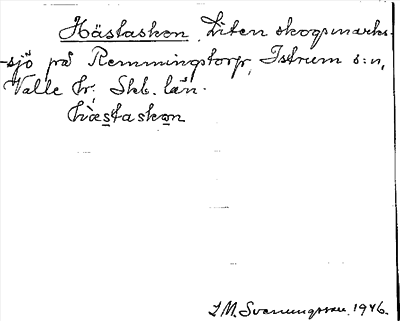 Hästaskon. Liten skogsmarks-
-sjö på Remmingstorp, Istrum s:n,
Valle hr; Skb. län.
hästaskon
I.M. Svanungsson. 1946.